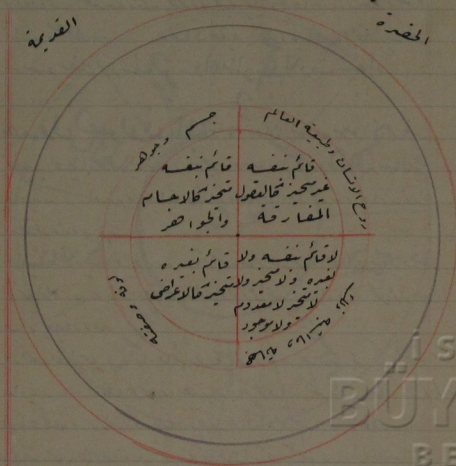 الحضرة
القديمة
جسم وجوهر
روح الانسان وطبيعة العالم
قائم بنفسه
غير متحيز كالعقول
المفارقة
قائم بنفسه
متحيز كالاجسام
والجواهر
لا قائم بنفسه ولا
بغيره ولا متحيز ولا
لا متحيز لا معدوم
ولا موجود
قائم بغيره
متحيز كالاعراض
İS
BÜY
BE